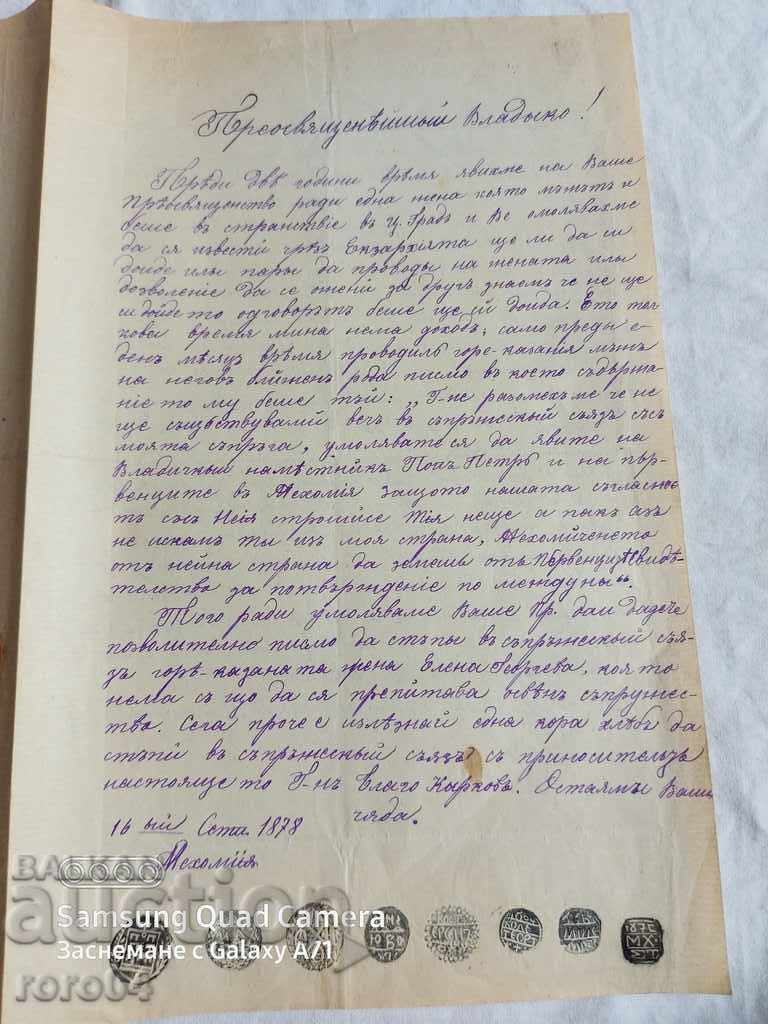 Преосвященѣйшый Владыко!
Прѣди двѣ години врѣмя явихме на Ваше
Прѣосвященство ради една жена която мъжътъ и
беше въ странствіе въ Ц. Градъ и Ве омолявахме
да ся извести чрѣзъ Екзархіята ще ли да си
дойде или пары да проводы на жената или
дезволеніе да се ожени за другъ знаемъ че не ще
и дойде то одговорътъ беше ще й доида. Ето тол
кови время мина нема доходъ; само преди е-
денъ мѣсяцъ врѣмя проводилъ горе-казания мъжъ
на неговъ ближенъ рода писмо въ което съдържа
ніе то му беше тъй: „Г-не разомехъме че не
ще съществувамй вечъ въ съпрѫжескый съюзъ със
моята съпруга, умолявате ся да явите на
Владичкый намѣстникъ Попъ Петръ и на пър-
венците въ Мехомія защото нашата съгласнос
тъ със Нея строшисе тія неще а пакъ азъ
не искамъ ты изъ моя страна, Мехомиченето
отъ нейна страна да земешъ отъ Первенците свидѣ-
телство за потвърждение по между ны“.
Того ради умоляваме Ваше Пр. да и дадече
позволително писмо да стѫпы въ съпрѫжескый съю-
зъ горѣ-казаната жена Елена Георгева, коя то
нема съ що да ся препитава освѣнъ съпружес-
тво. Сега проче е излѣзнай една кора хлѣбъ да
стѫпй въ съпрѫжескый съюзъ съ приносительтъ
настоящето Г-нъ Благо Карковъ. Остаямъ Ваши
чяда.
16 ый Септ. 1878
Мехомия
БАЛКАН
auction
Samsung Quad Camera
Заснемане с Galaxy A71
roro64